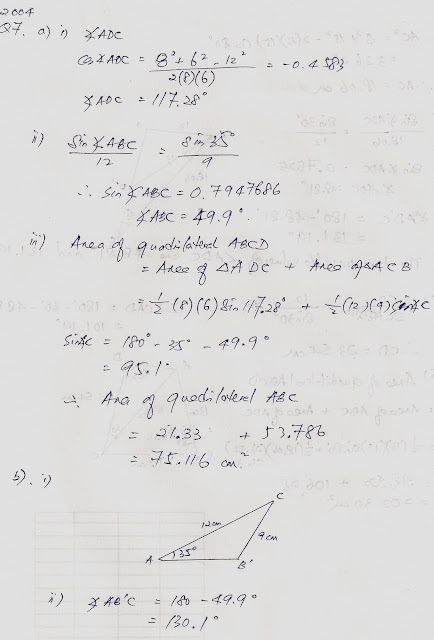 2004
Q7. a) i) ∡ADC
cos ∡ADC = 8² + 6² - 12² / 2(8)(6) = -0.4583
∡ADC = 117.28°
ii) Sin ∡ABC / 12 = Sin 35° / 9
∴ Sin ∡ABC = 0.7947686
∡ABC = 49.9°.
iii) Area of quadilateral ABCD
= Area of △ADC + Area of △ACB
= ½ (8)(6) Sin 117.28° + ½ (12)(9) Sin ∡C
Sin ∡C = 180° - 35° - 49.9°
= 95.1°
∴ Area of quadilateral ABC
= 21.33 + 53.786
= 75.116 cm²
b). i)
C
12cm
9cm
A 35° B'
ii) ∡AB'C = 180 - 49.9°
= 130.1°